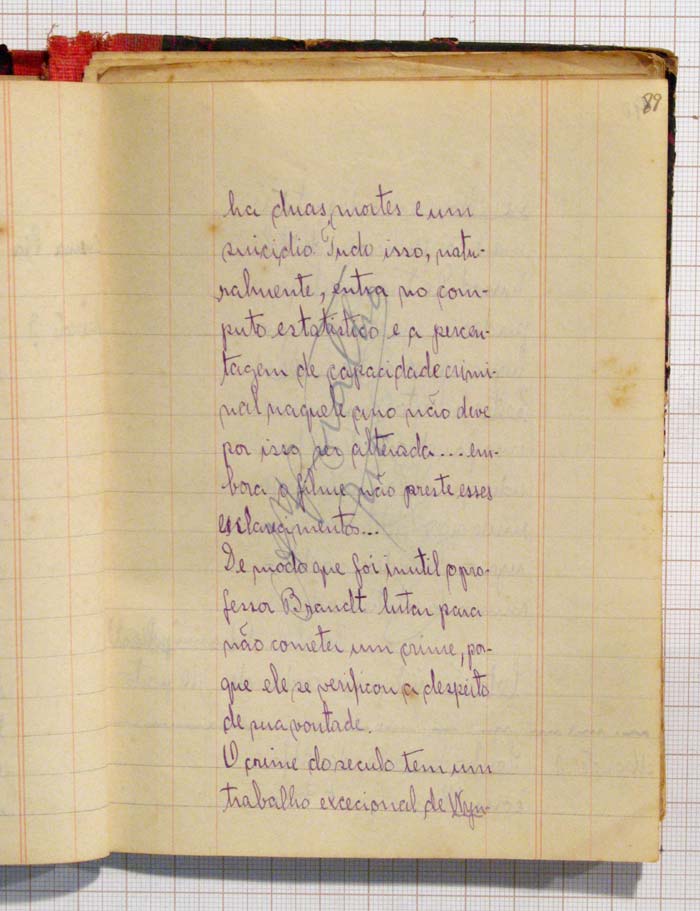 89
ha duas mortes e um
suicidio. Tudo isso, natu-
ralmente, entra no com-
puto estatistico e a percen-
tagem de capacidade crimi-
nal naquele ano não deve
por isso ser alterada... em-
bora o filme não preste esses
esclarecimentos...
De modo que foi inutil o pro-
fessor Brandt lutar para
não cometer um crime, por-
que ele se verificou a despeito
de sua vontade.
O crime do seculo tem um
trabalho excecional de Wyn-